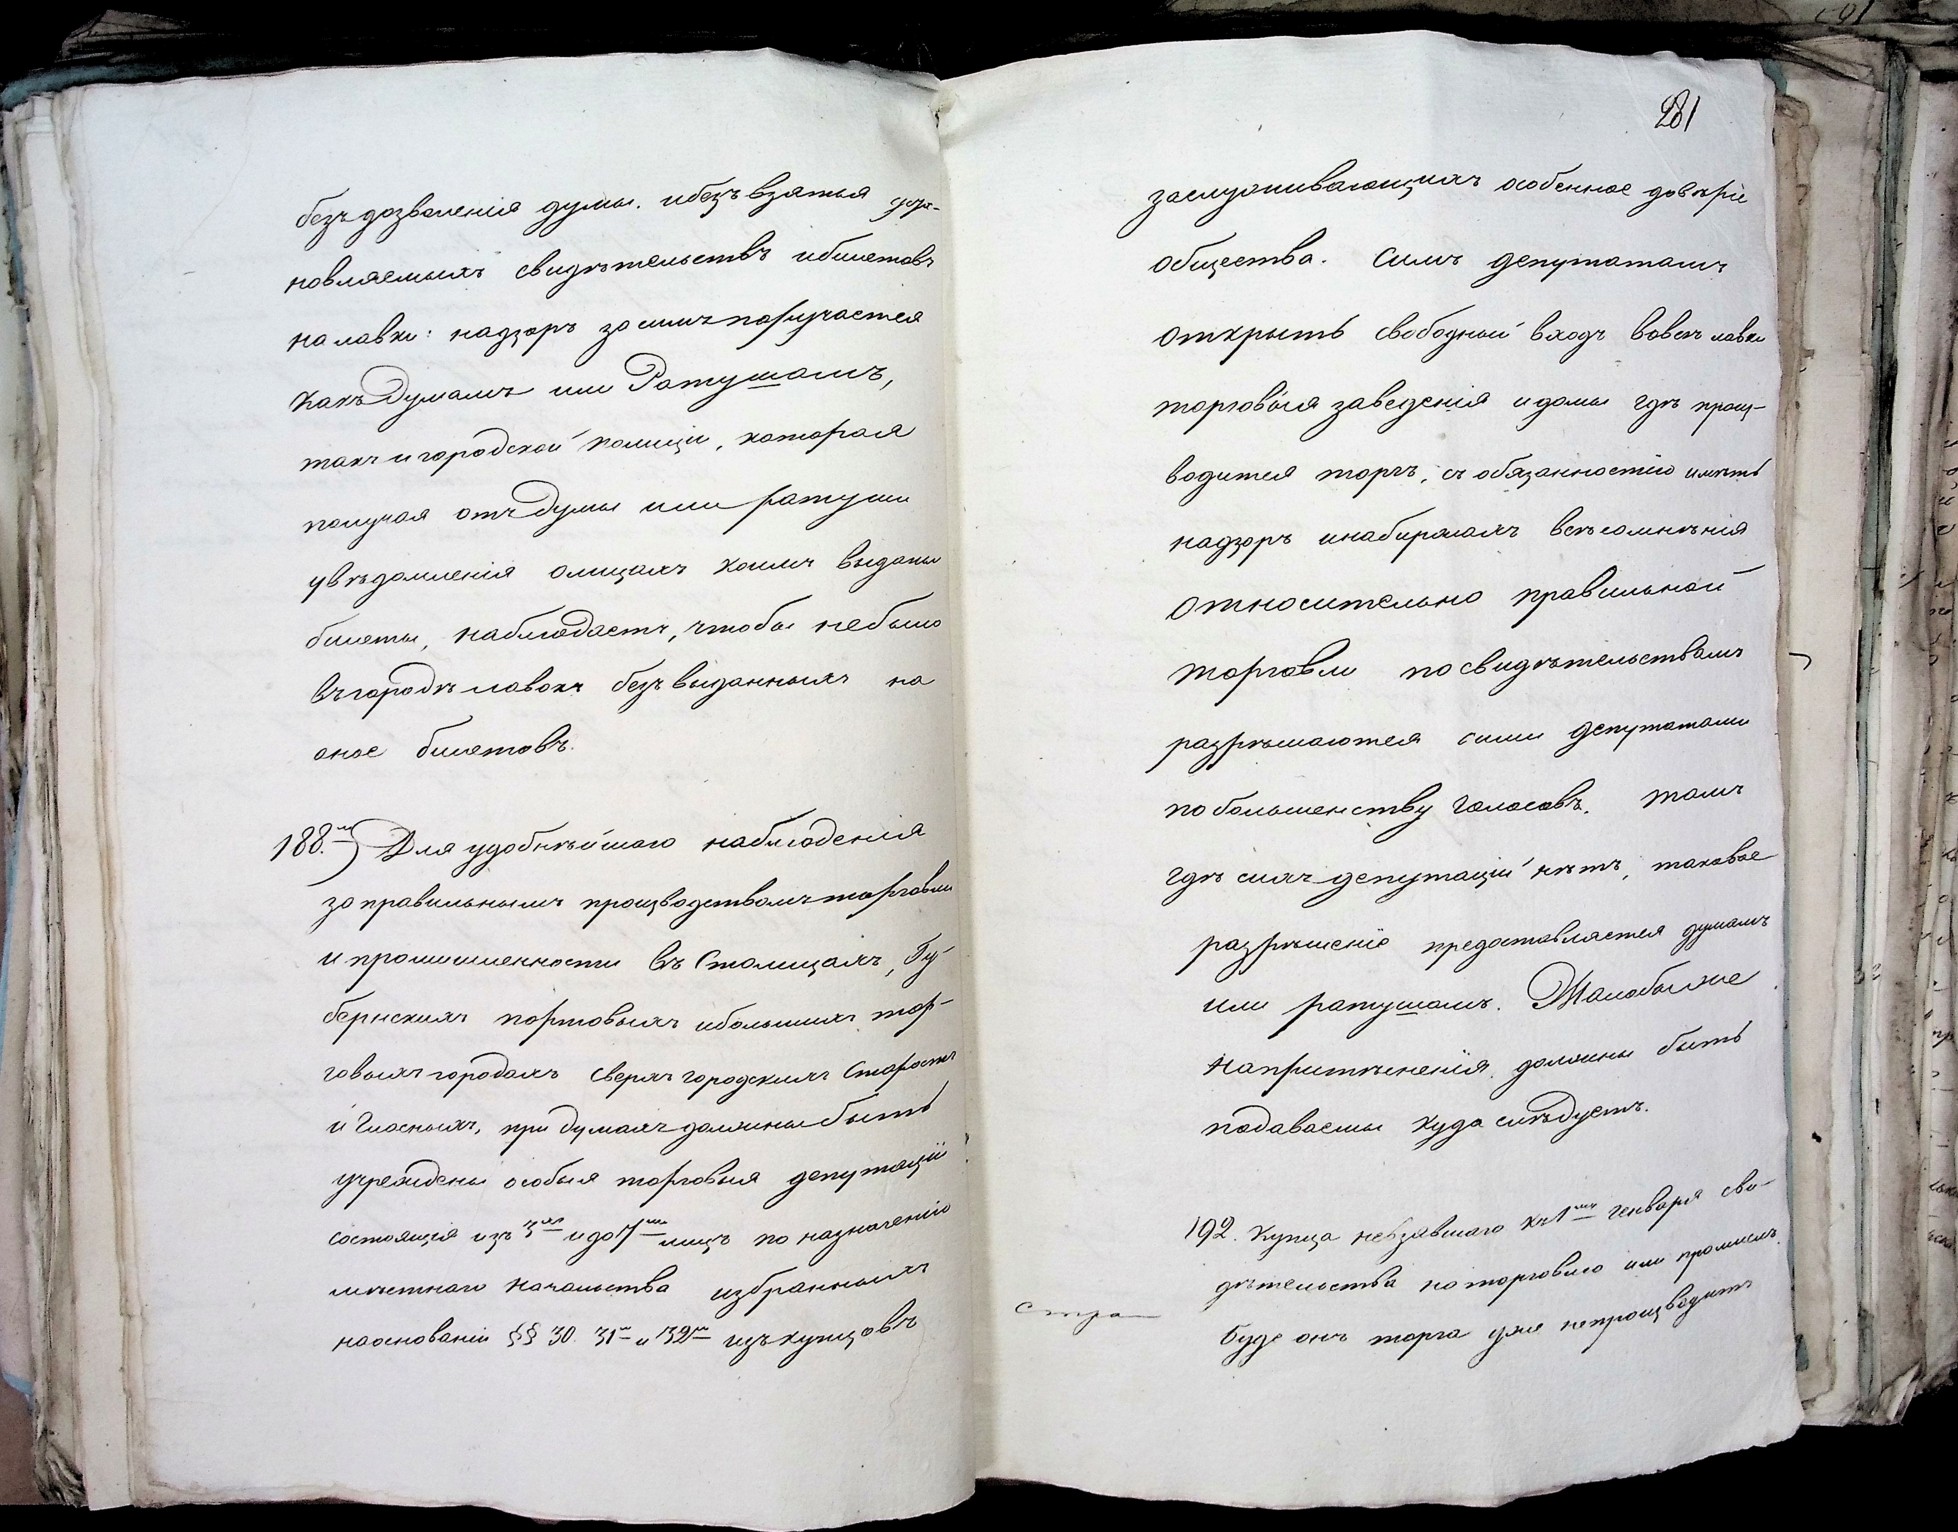 безъ дозволенія думы. и безъ взятья уста-
новляемыхъ свидѣтельствъ и билетовъ
на лавки: надзоръ за симъ поручается
какъ Думамъ или Ратушамъ,
такъ и городской полиціи, которая
получая отъ думы или ратуши
увѣдомленія о лицахъ коимъ выданы
билеты, наблюдаетъ, чтобы небыло
въ городѣ лавокъ безъ выданныхъ на
оное билетовъ.
188.) Для удобнѣйшаго наблюденія
за правильнымъ производствомъ торговли
и промышленности въ Столицахъ, Гу-
бернскихъ портовыхъ и большихъ тор-
говыхъ городахъ сверхъ городскихъ Старостъ
и Гласныхъ, при думахъ должны быть
учреждены особыя торговыя депутаціи
состоящія изъ 3хъ и до 7ми лицъ по назначенію
мѣстнаго начальства избранныхъ
на основаніи §§ 30. 31го и 32го изъ купцовъ
281
заслуживающихъ особенное довѣріе
общества. Симъ депутатамъ
открытъ свободный входъ во всѣ лавки
торговыя заведенія и домы гдѣ произ-
водится торгъ, съ обязанностію имѣть
надзоръ и на биржахъ всѣ сомнѣнія
относительно правильной
торговли по свидѣтельствамъ
разрѣшаются сими депутатами
по большенству голосовъ. тамъ
гдѣ сихъ депутацій нѣтъ, таковое
разрѣшеніе предоставляется думамъ
или ратушамъ. Жалобы же
на притѣсненія должны быть
подаваемы куда слѣдуетъ.
192. Купца невзявшаго къ 1му Генваря сви-
дѣтельства на торговлю или промыслъ
буде онъ торга уже непроизводитъ
стра